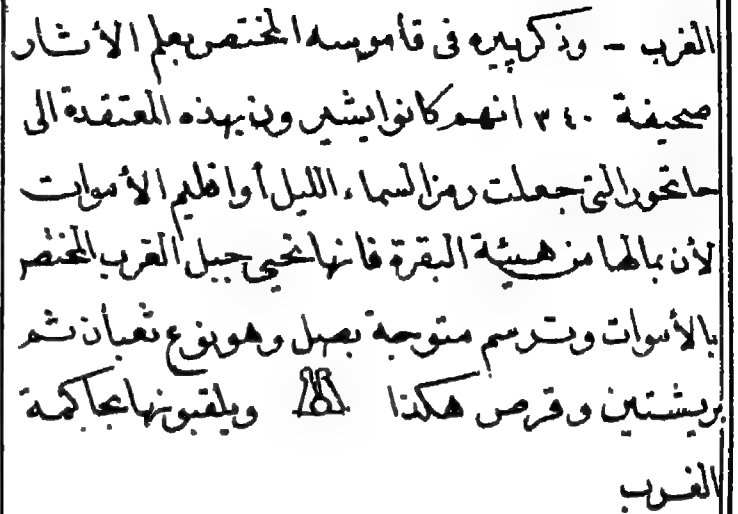 الغرب – وذكر بييره فى قاموسه المختصر بعلم الأثار
صحيفة ٣٤٠ انهم كانوا يشيرون بهذه المعتقدة الى
حاتحور التى جعلت رمزا لسماء الليل أو اقليم الأموات
لأن بمالها من هيئة البقرة فانها تحيى جبل الغرب المختص
بالأموات وترسم متوجة بصل وهو نوع ثعبان ثم
بريشتين وقرص هكذا ويلقبونها بحاكمة
الغرب